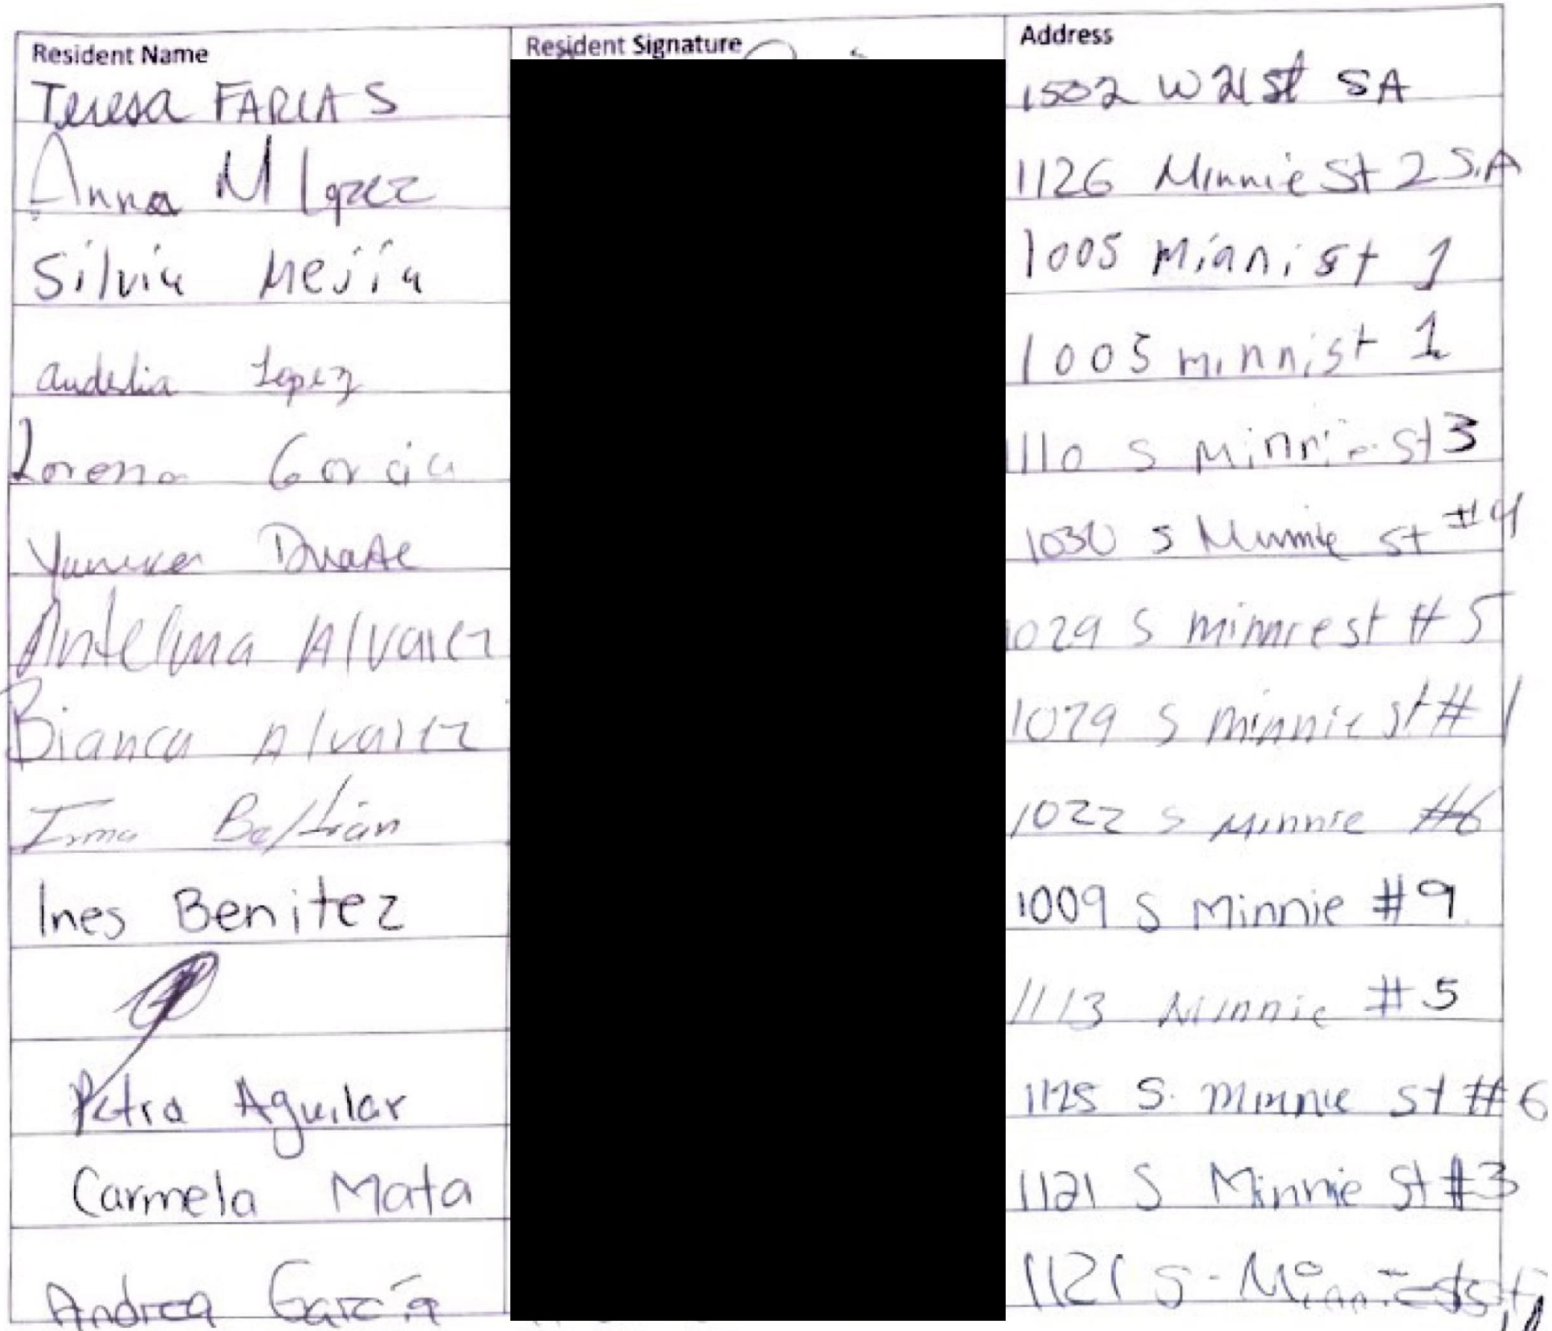 Resident Name Resident Signature Address
Teresa FARIAS 1502 W 21 st SA
Anna M Lopez 1126 Minnie St 2 S.A
Silvia Mejia 1005 Mianist 1
audelia Lopez 1005 minnist 1
Lorena Garcia 1110 S Minnie St 3
Duarte 1030 S Minnie St #4
Antelma Alvarez 1029 S minnie st #5
Bianca Alvarez 1029 S minnie st # 1
Irma Beltrán 1022 S Minnie #6
Ines Benitez 1009 S Minnie #9
1113 Minnie #5
Petra Aguilar 1125 S. Minnie St #6
Carmela Mata 1121 S Minnie St #3
Andrea García 1121 S. Minnie